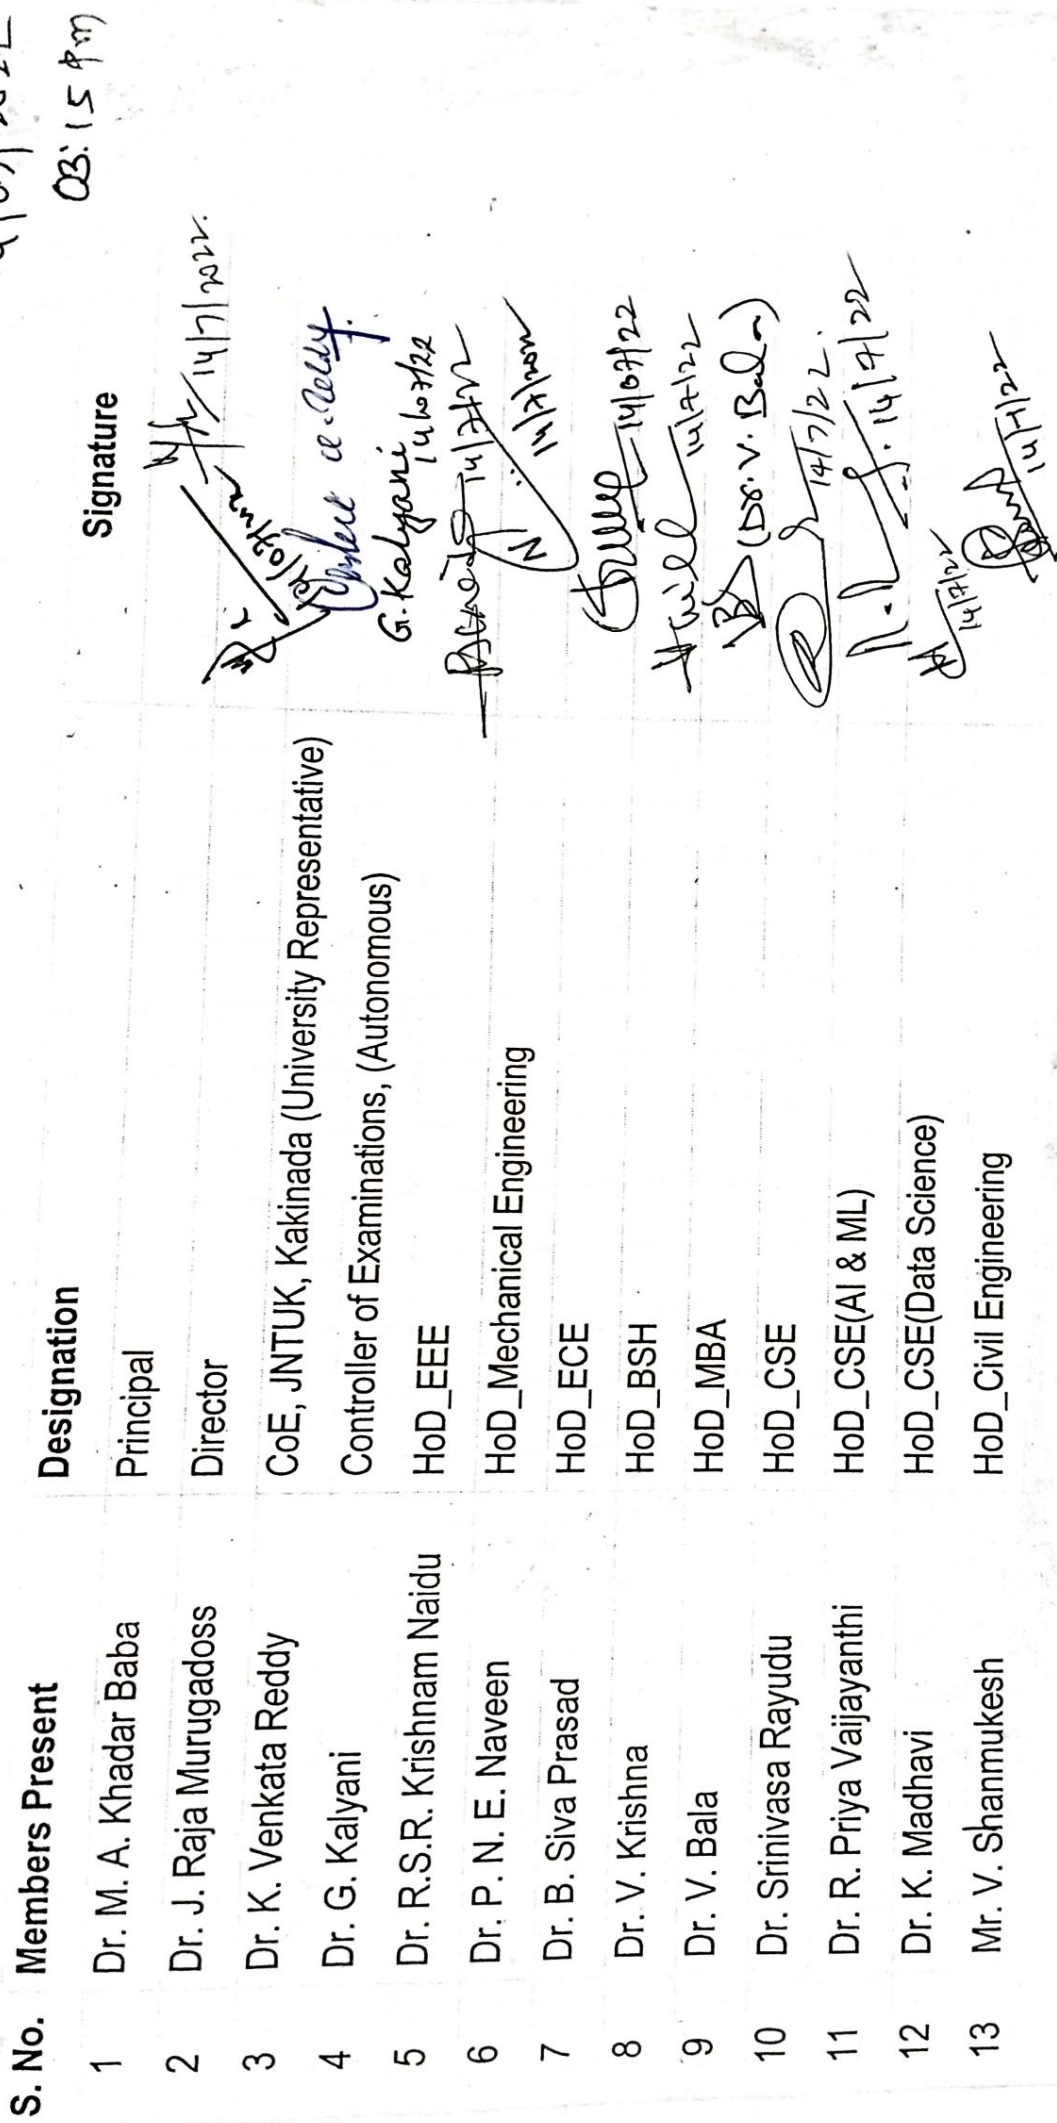 03:15 pm
S. No. Members Present Designation Signature
1 Dr. M. A. Khadar Baba Principal 14/7/2022.
2 Dr. J. Raja Murugadoss Director
3 Dr. K. Venkata Reddy CoE, JNTUK, Kakinada (University Representative)
4 Dr. G. Kalyani Controller of Examinations, (Autonomous) G. Kalyani 14/07/22
5 Dr. R.S.R. Krishnam Naidu HoD_EEE 14/7/22
6 Dr. P. N. E. Naveen HoD_Mechanical Engineering 14/7/2022
7 Dr. B. Siva Prasad HoD_ECE 14/07/22
8 Dr. V. Krishna HoD_BSH 14/7/22
9 Dr. V. Bala HoD_MBA (Dr. V. Bala)
10 Dr. Srinivasa Rayudu HoD_CSE 14/7/22.
11 Dr. R. Priya Vaijayanthi HoD_CSE(AI & ML) 14/7/22
12 Dr. K. Madhavi HoD_CSE(Data Science) 14/7/22
13 Mr. V. Shanmukesh HoD_Civil Engineering 14/7/22